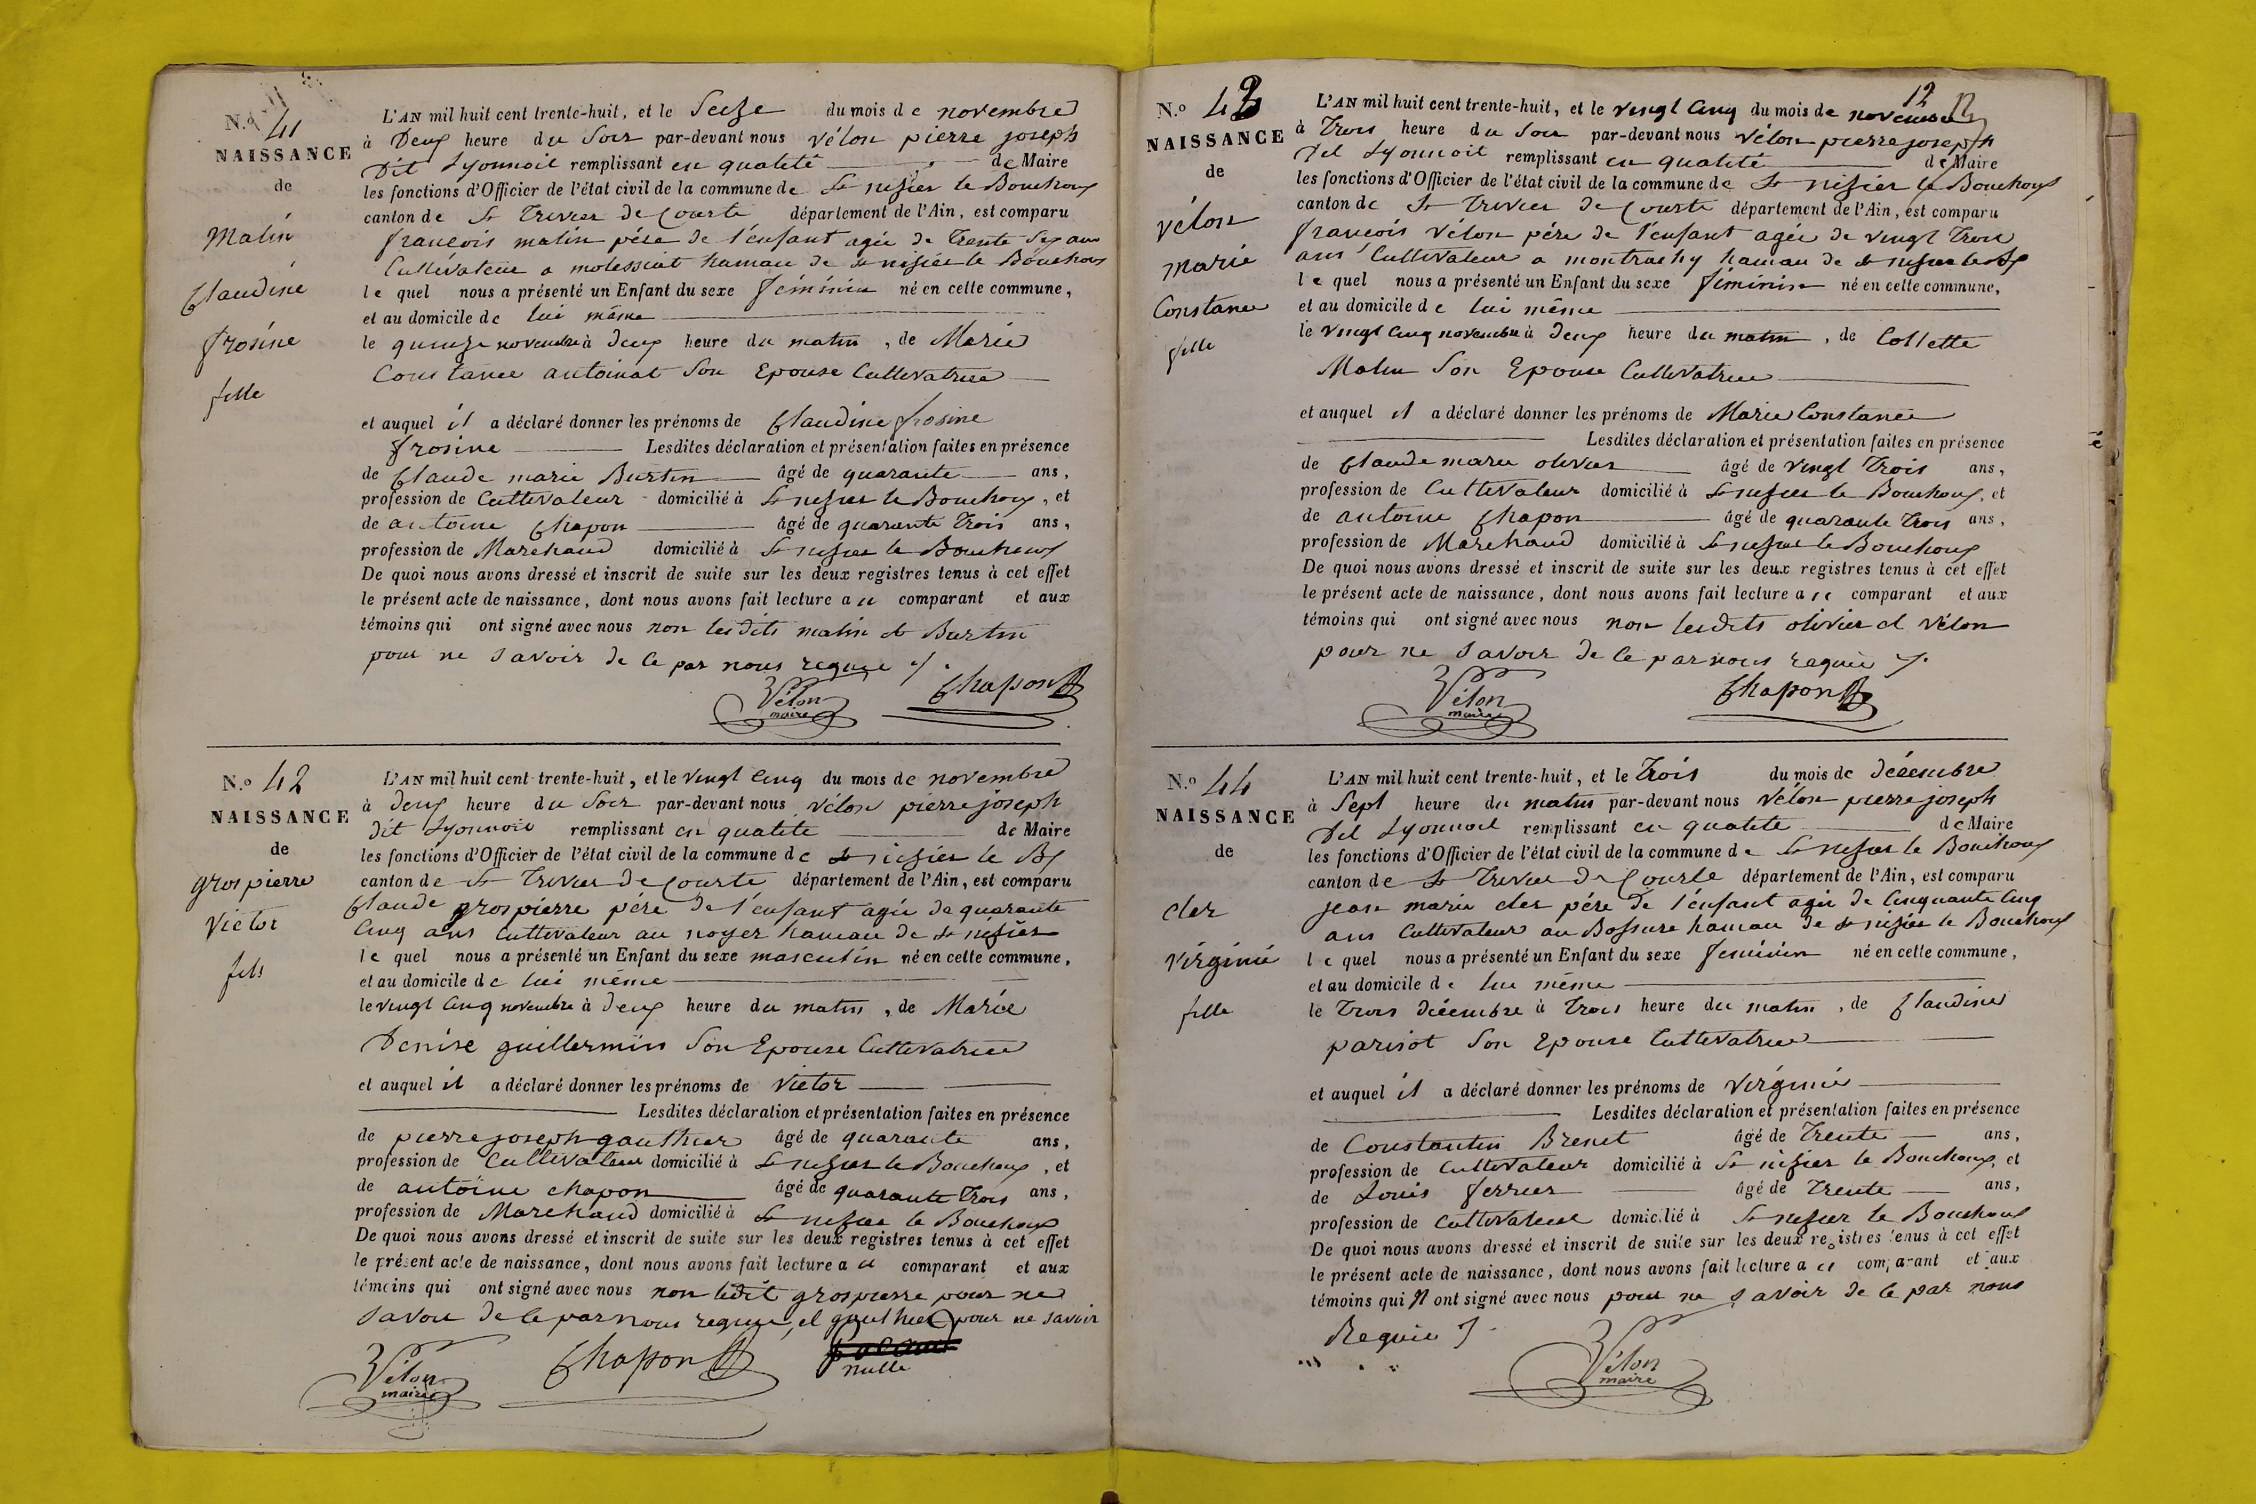 N.o 41
NAISSANCE
de
Malin
Claudine
frosine
fille
L'AN mil huit cent trente-huit, et le Seize du mois de novembre
à Deux heure du Soir par-devant nous vélon pierre joseph
Dit Lyonnoit remplissant en qualité de Maire
les fonctions d'Officier de l'état civil de la commune de St nisier le Bouchoux
canton de St Trivier de Courte département de l'Ain, est comparu
françois malin pére de l'enfant agée de Trente Six ans
Cultivateur a molessiat hamau de St nisier le Bouchoux
le quel nous a présenté un Enfant du sexe féminin né en cette commune,
et au domicile de lui même
le quinze novembre à deux heure du matin, de Marie
Constance antoinat Son Epouse Cultivatrice
et auquel il a déclaré donner les prénoms de Claudine frosine
frosine Lesdites déclaration et présentation faites en présence
de Claude marie Burtin âgé de quarante ans,
profession de Cultivateur domicilié à St nisier le Bouchoux, et
de antoine Chapon âgé de quarante Trois ans,
profession de Marchand domicilié à St nisier le Bouchoux
De quoi nous avons dressé et inscrit de suite sur les deux registres tenus à cet effet
le présent acte de naissance, dont nous avons fait lecture a ce comparant et aux
témoins qui ont signé avec nous non lesdits malin et Burtin
pour ne Savoir de ce par nous requie ./.
Vélon
maire
Chapon
N.o 42
NAISSANCE
de
grospierre
Victor
fils
L'AN mil huit cent trente-huit, et le vingt Cinq du mois de novembre
à deux heure du Soir par-devant nous vélon pierre joseph
dit Lyonnoit remplissant en qualité de Maire
les fonctions d'Officier de l'état civil de la commune de St nisier le Bx
canton de St Trivier de Courte département de l'Ain, est comparu
Claude grospierre pére de l'enfant agée de quarante
Cinq ans Cultivateur au noyer hameau de St nisier
le quel nous a présenté un Enfant du sexe masculin né en cette commune,
et au domicile de lui même
le vingt Cinq novembre à deux heure du matin, de Marie
Denise guillermin Son Epouse Cultivatrice
et auquel il a déclaré donner les prénoms de victor
Lesdites déclaration et présentation faites en présence
de pierre joseph gauthier âgé de quarante ans,
profession de Cultivateur domicilié à St nisier le Bouchoux, et
de antoine chapon âgé de quarante Trois ans,
profession de Marchand domicilié à St nisier le Bouchoux
De quoi nous avons dressé et inscrit de suite sur les deux registres tenus à cet effet
le présent acte de naissance, dont nous avons fait lecture a ce comparant et aux
témoins qui ont signé avec nous non ledit grospierre pour ne
Savoir de ce par nous requie, et gauthier pour ne savoir
nulle
Vélon
maire
Chapon
12
N.o 43
NAISSANCE
de
vélon
marie
Constance
fille
L'AN mil huit cent trente-huit, et le vingt Cinq du mois de novembre
à Trois heure du Soir par-devant nous vélon pierre joseph
Dit Lyonnoit remplissant en qualité de Maire
les fonctions d'Officier de l'état civil de la commune de St nisier le Bouchoux
canton de St Trivier de Courte département de l'Ain, est comparu
françois vélon pére de l'enfant agée de vingt Trois
ans Cultivateur a montrachy hamau de St nisier le Bx
le quel nous a présenté un Enfant du sexe féminin né en cette commune,
et au domicile de lui même
le vingt Cinq novembre à deux heure du matin, de Collette
Malin Son Epouse Cultivatrice
et auquel il a déclaré donner les prénoms de Marie Constance
Lesdites déclaration et présentation faites en présence
de Claude marie olivier âgé de vingt Trois ans,
profession de Cultivateur domicilié à St nisier le Bouchoux, et
de antoine Chapon âgé de quarante Trois ans,
profession de Marchand domicilié à St nisier le Bouchoux
De quoi nous avons dressé et inscrit de suite sur les deux registres tenus à cet effet
le présent acte de naissance, dont nous avons fait lecture a ce comparant et aux
témoins qui ont signé avec nous non lesdits olivier et vélon
pour ne Savoir de ce par nous requie ./.
Vélon
maire
Chapon
N.o 44
NAISSANCE
de
cler
virginie
fille
L'AN mil huit cent trente-huit, et le Trois du mois de décembre
à Sept heure du matin par-devant nous vélon pierre joseph
Dit Lyonnoit remplissant en qualité de Maire
les fonctions d'Officier de l'état civil de la commune de St nisier le Bouchoux
canton de St Trivier de Courte département de l'Ain, est comparu
jean marie cler pére de l'enfant agée de Cinquante Cinq
ans Cultivateur au Bossure hameau de St nisier le Bouchoux
le quel nous a présenté un Enfant du sexe feminin né en cette commune,
et au domicile de lui même
le Trois décembre à Trois heure du matin, de Claudine
parisot Son Epouse Cultivatrice
et auquel il a déclaré donner les prénoms de virginie
Lesdites déclaration et présentation faites en présence
de Constantin Brenet âgé de Trente ans,
profession de Cultivateur domicilié à St nisier le Bouchoux, et
de Louis ferrier âgé de Trente ans,
profession de Cultivateur domicilié à St nisier le Bouchoux
De quoi nous avons dressé et inscrit de suite sur les deux registres tenus à cet effet
le présent acte de naissance, dont nous avons fait lecture a ce comparant et aux
témoins qui n ont signé avec nous pour ne Savoir de ce par nous
Requie ./.
Vélon
maire